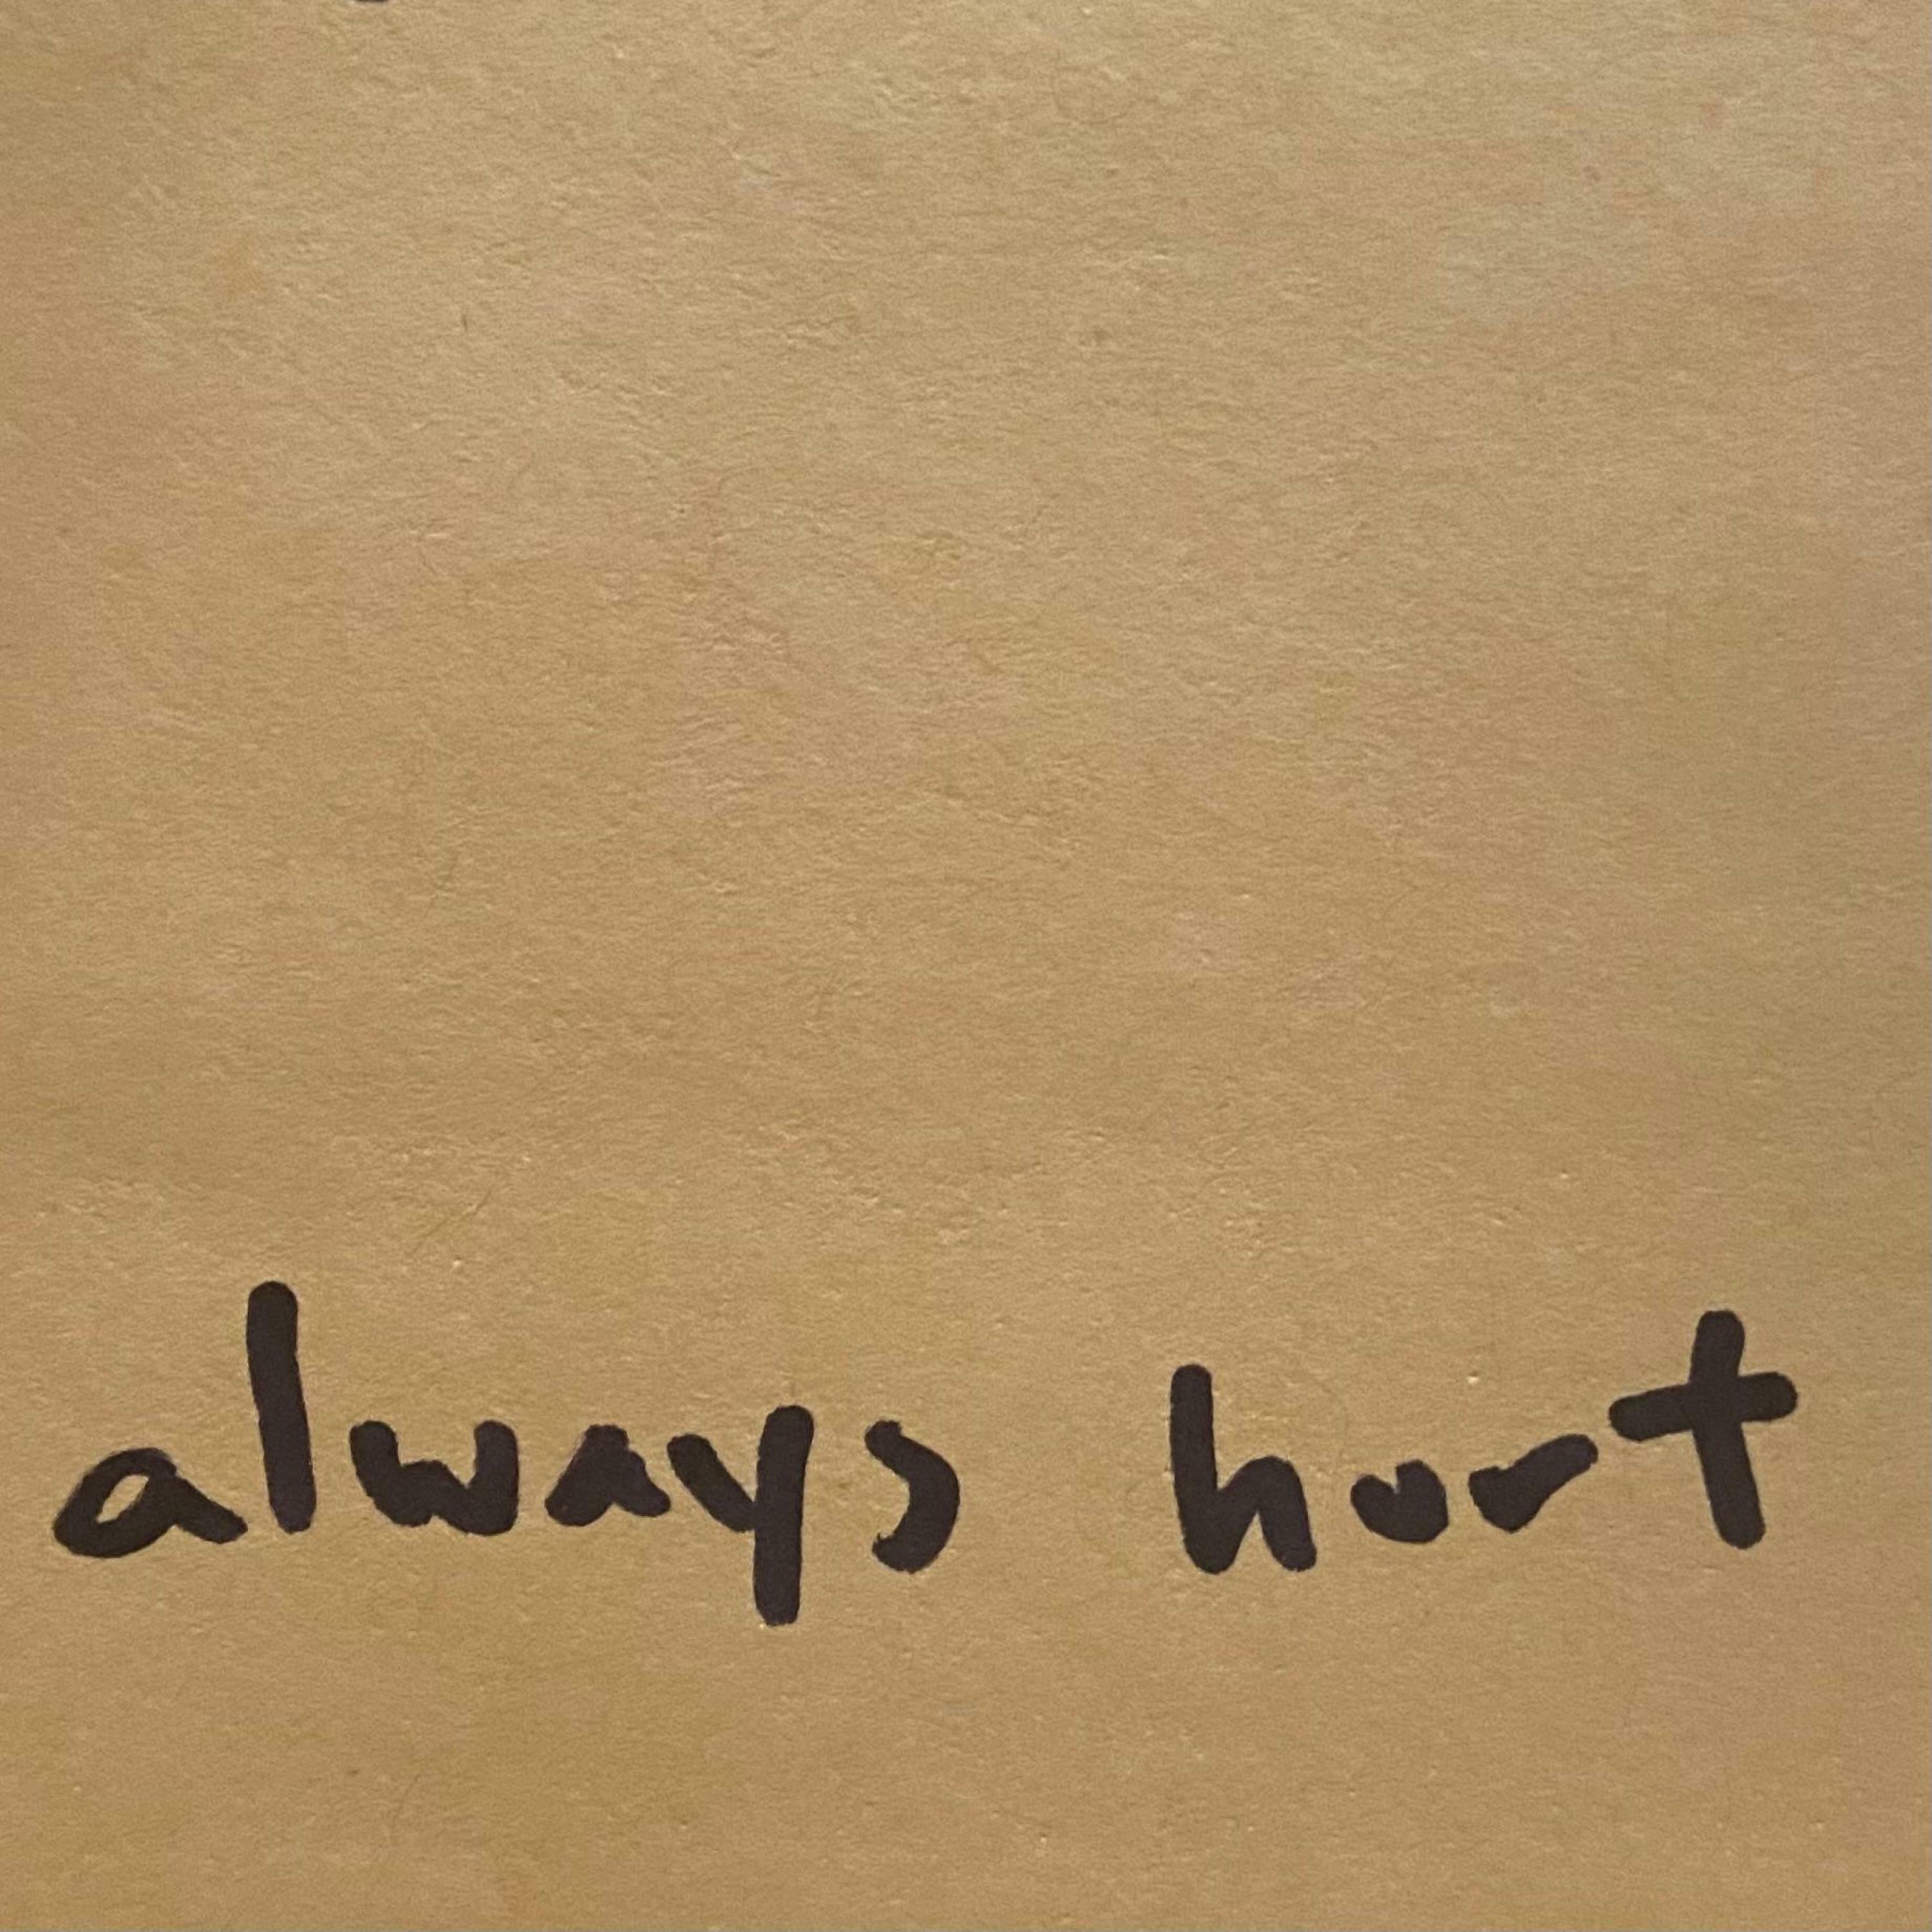 always hurt